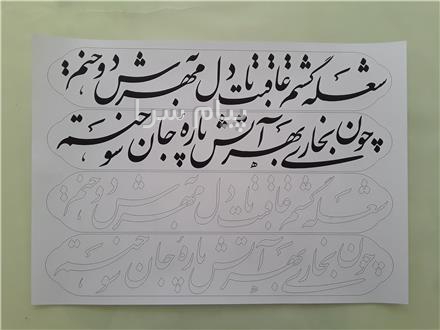 شعله گشتم عاقبت تا دل بمهرش دوختم
چون بخاری بهر آتش پارهٔ جان سوختم
شعله گشتم عاقبت تا دل بمهرش دوختم
چون بخاری بهر آتش پارهٔ جان سوختم
پیام سرا